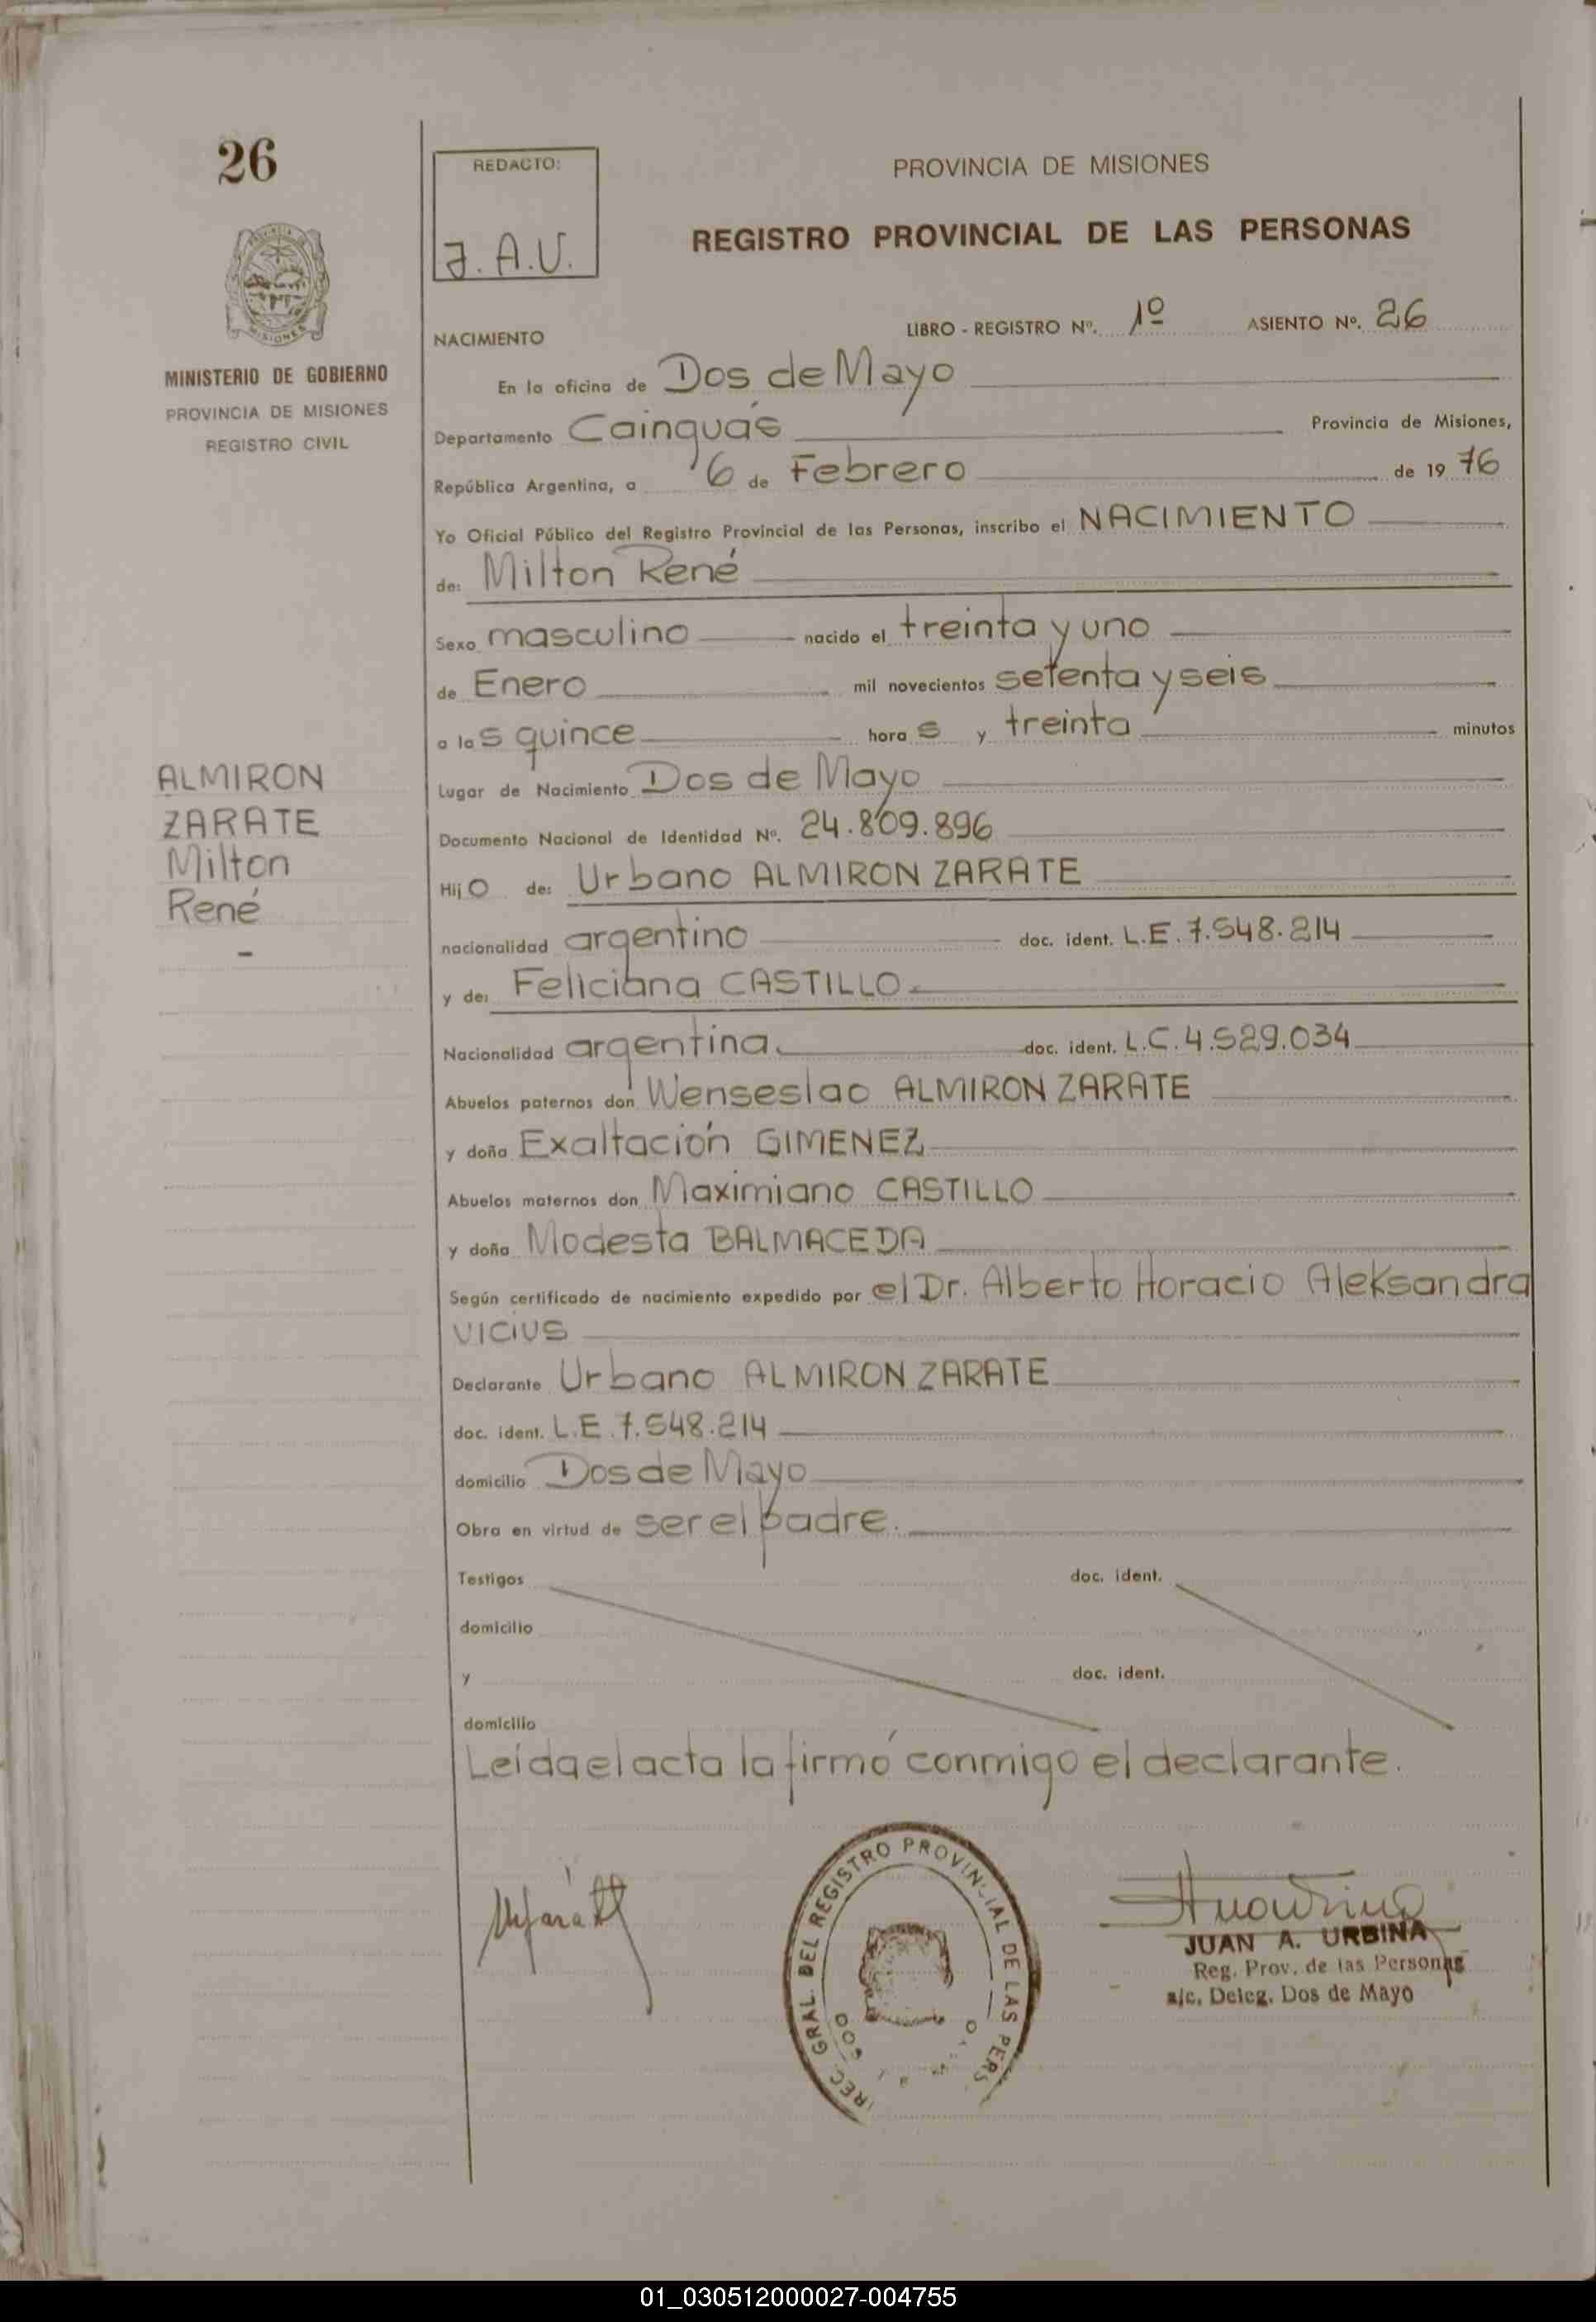 26
REDACTO:
J.A.U.
PROVINCIA DE MISIONES
REGISTRO PROVINCIAL DE LAS PERSONAS
MINISTERIO DE GOBIERNO
PROVINCIA DE MISIONES
REGISTRO CIVIL
NACIMIENTO
LIBRO - REGISTRO Nº. 1º ASIENTO Nº. 26
En la oficina de Dos de Mayo
Departamento Cainguás Provincia de Misiones,
República Argentina, a 6 de Febrero de 1976
Yo Oficial Público del Registro Provincial de las Personas, inscribo el NACIMIENTO
de: Milton René
Sexo masculino nacido el treinta y uno
de Enero mil novecientos setenta y seis
a las quince horas y treinta minutos
Lugar de Nacimiento Dos de Mayo
Documento Nacional de Identidad Nº. 24.809.896
ALMIRON
ZARATE
Milton
René
-
Hijo de: Urbano ALMIRON ZARATE
nacionalidad argentino doc. ident. L.E. 7.548.214
y de: Feliciana CASTILLO
Nacionalidad argentina. doc. ident. L.C. 4.529.034
Abuelos paternos don Wenseslao ALMIRON ZARATE
y doña Exaltación GIMENEZ
Abuelos maternos don Maximiano CASTILLO
y doña Modesta BALMACEDA
Según certificado de nacimiento expedido por el Dr. Alberto Horacio Aleksandra
vicius
Declarante Urbano ALMIRON ZARATE
doc. ident. L.E. 7.548.214
domicilio Dos de Mayo
Obra en virtud de ser el padre.
Testigos doc. ident.
domicilio
y doc. ident.
domicilio
Leída el acta la firmó conmigo el declarante.
GRAL. DEL REGISTRO PROVINCIAL DE LAS PERS
JUAN A. URBINA
Reg. Prov. de las Personas
a/c. Deleg. Dos de Mayo
01_030512000027-004755